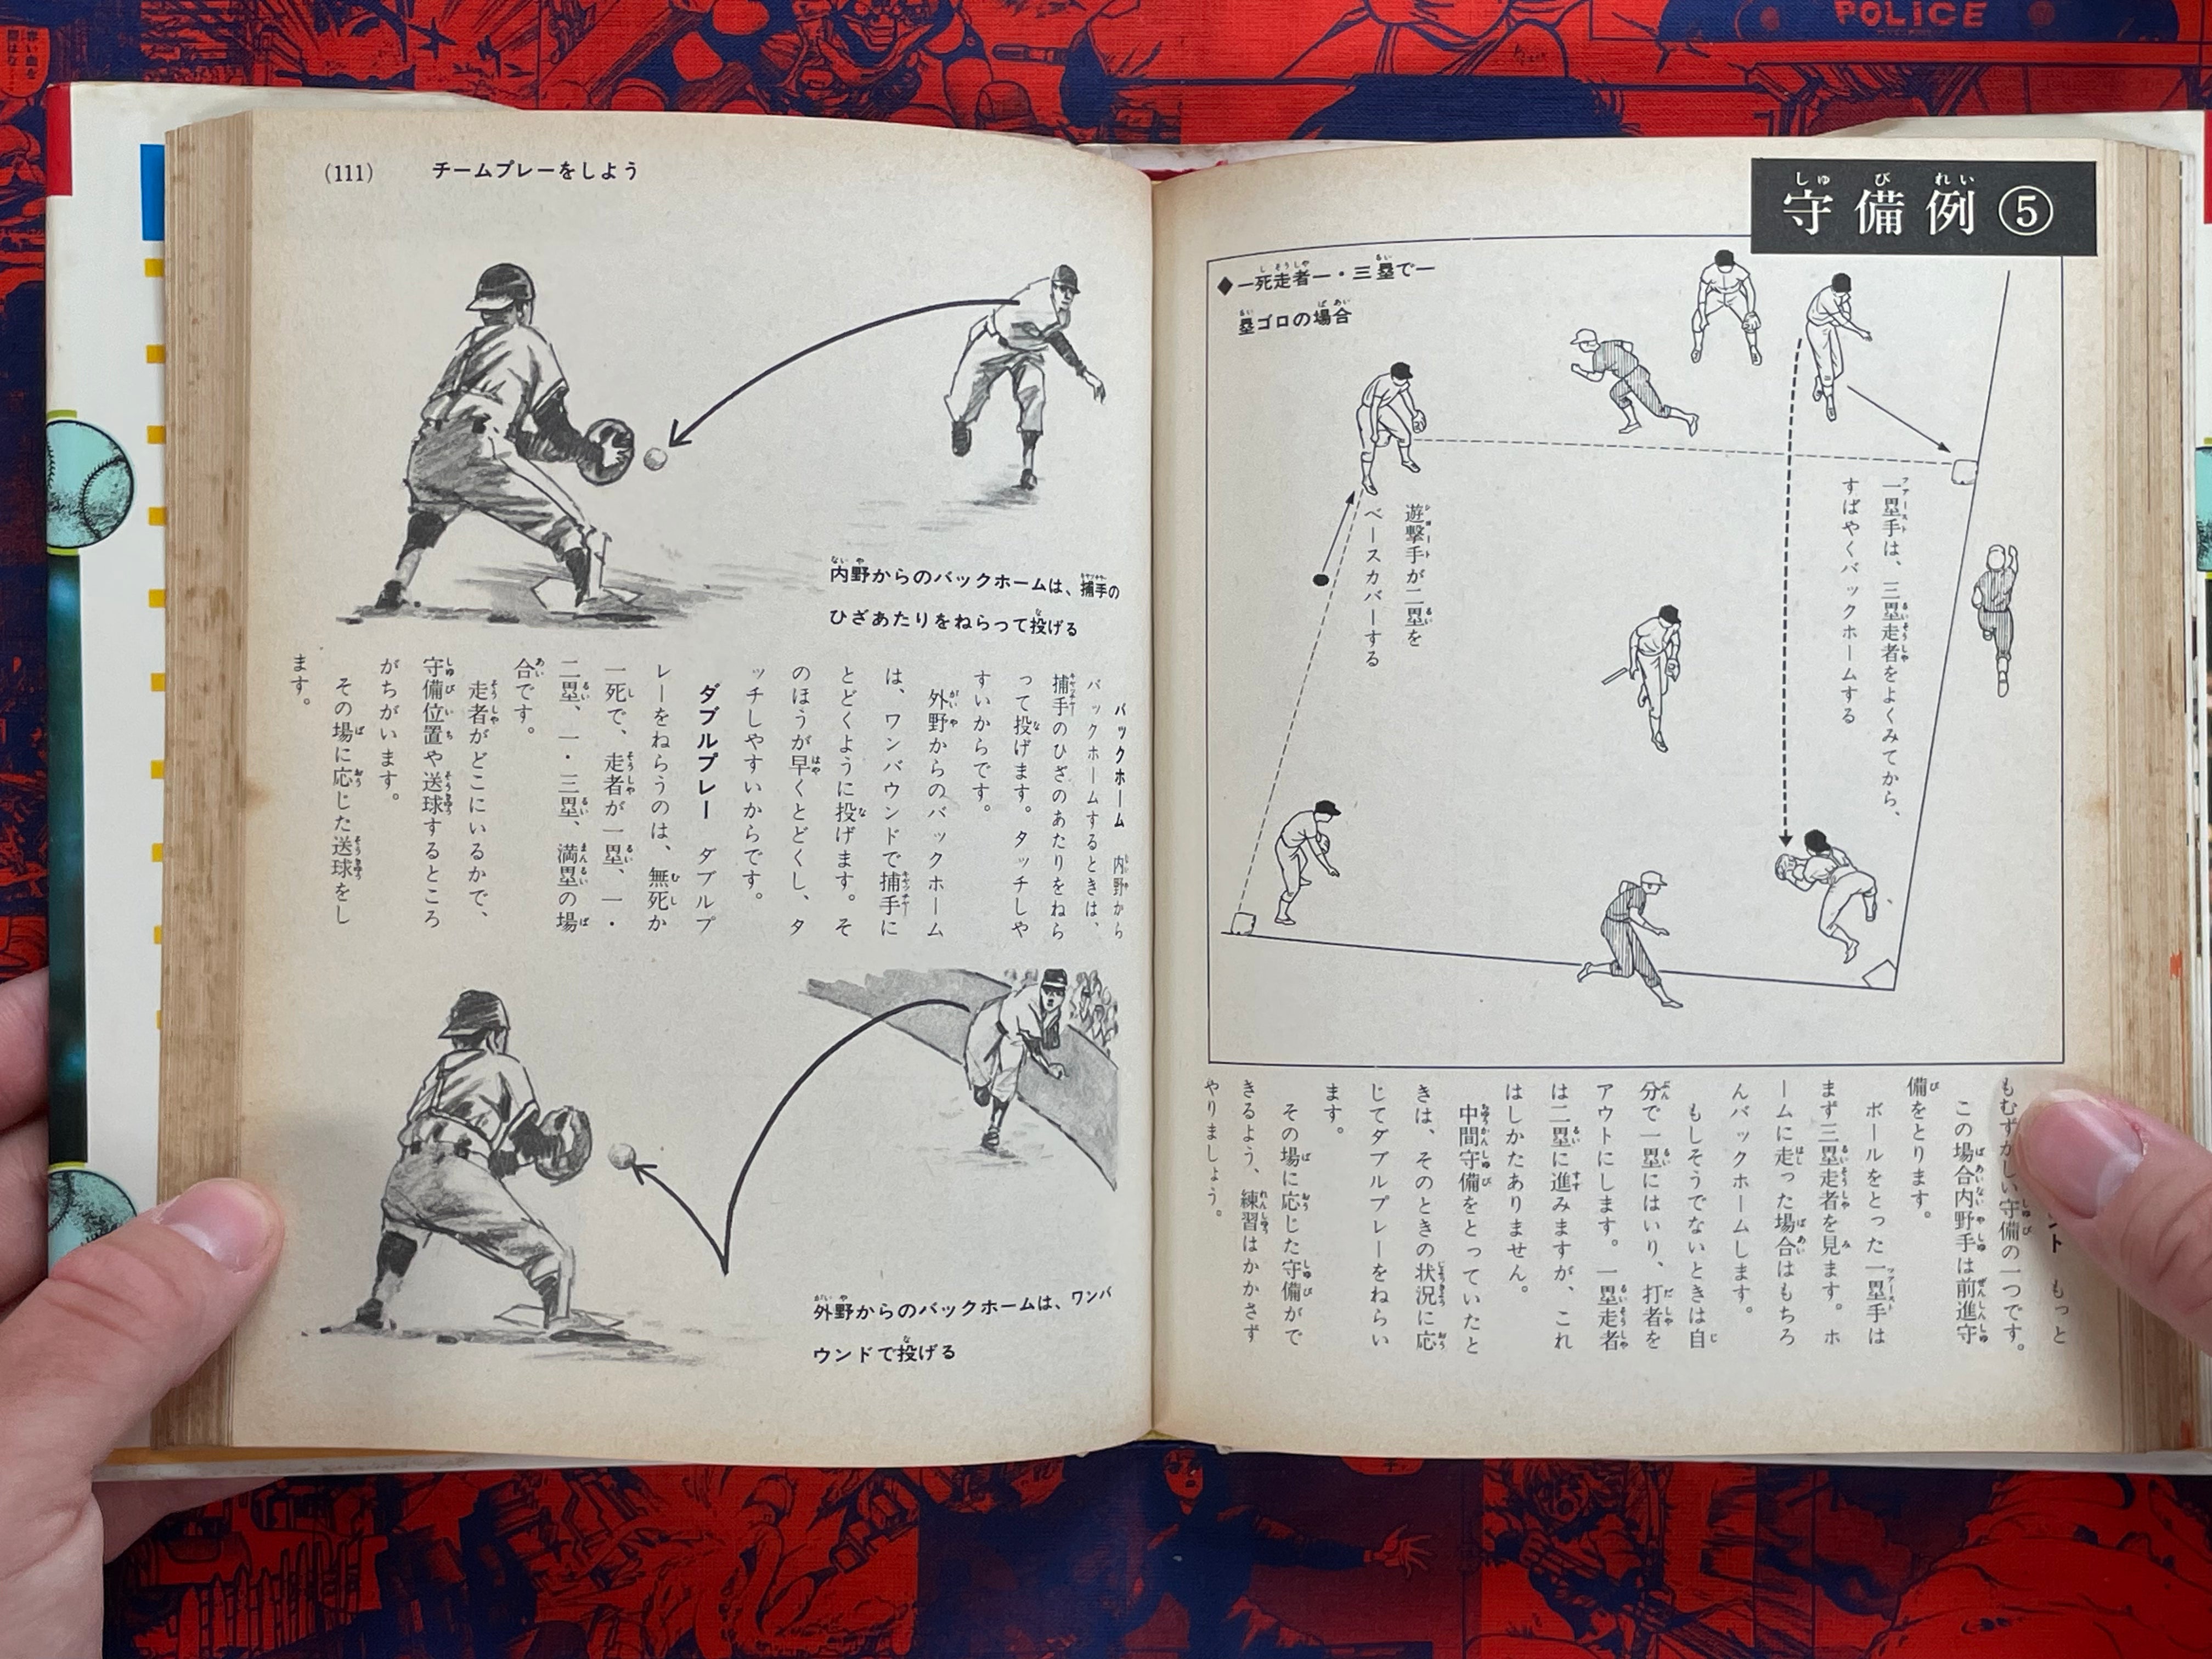 守備例⑤
◆一死走者一・三塁で一
塁ゴロの場合
一塁手は、三塁走者をよくみてから、
すばやくバックホームする
遊撃手が二塁を
ベースカバーする
ント　もっと
もむずかしい守備の一つです。
この場合内野手は前進守
備をとります。
ボールをとった一塁手は
まず三塁走者を見ます。ホ
ームに走った場合はもちろ
んバックホームします。
もしそうでないときは自
分で一塁にはいり、打者を
アウトにします。一塁走者
は二塁に進みますが、これ
はしかたありません。
中間守備をとっていたと
きは、そのときの状況に応
じてダブルプレーをねらい
ます。
その場に応じた守備がで
きるよう、練習はかかさず
やりましょう。
(111)　チームプレーをしよう
内野からのバックホームは、捕手の
ひざあたりをねらって投げる
バックホーム　内野から
バックホームするときは、
捕手のひざのあたりをねら
って投げます。タッチしや
すいからです。
外野からのバックホーム
は、ワンバウンドで捕手に
とどくように投げます。そ
のほうが早くとどくし、タ
ッチしやすいからです。
ダブルプレー　ダブルプ
レーをねらうのは、無死か
一死で、走者が一塁、一・
二塁、一・三塁、満塁の場
合です。
走者がどこにいるかで、
守備位置や送球するところ
がちがいます。
その場に応じた送球をし
ます。
外野からのバックホームは、ワンバ
ウンドで投げる
POLICE